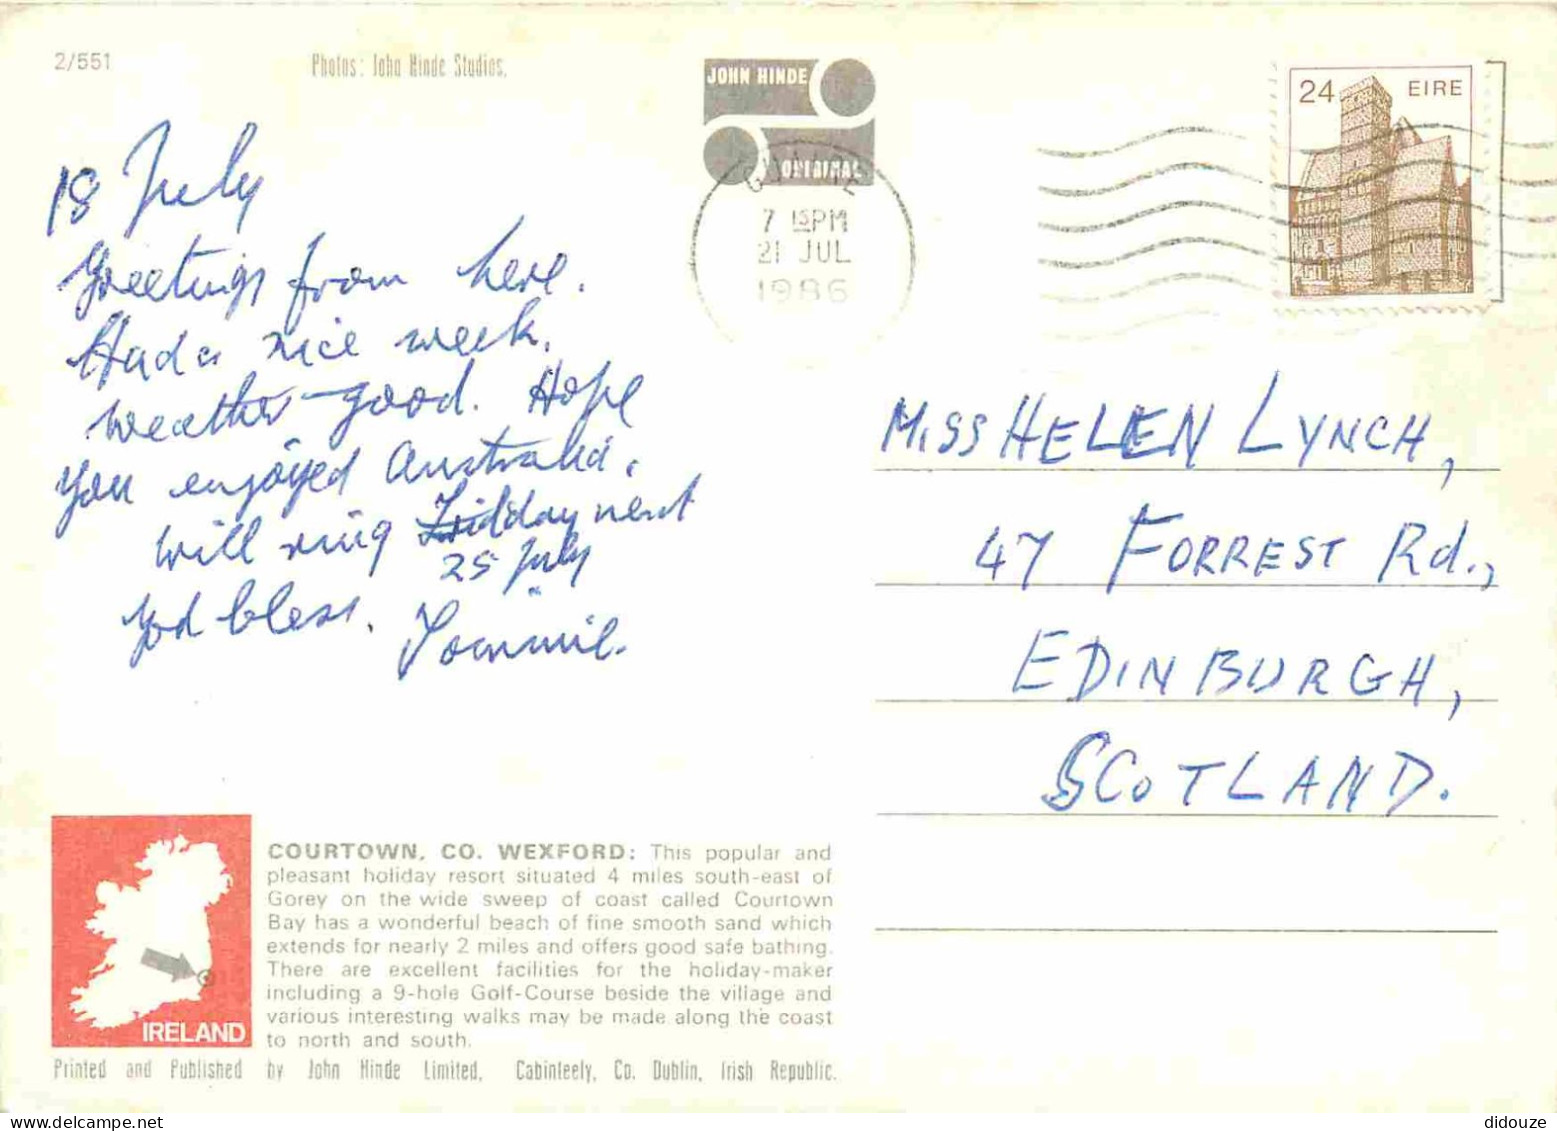 2/551
Photos: John Hinde Studios.
JOHN HINDE
ORIGINAL
7 15PM
21 JUL
1986
24 EIRE
18 July
Greetings from here.
Had a nice week.
Weather good. Hope
you enjoyed Australia.
Will ring Friday next
25 July
God bless. Tommie.
MISS HELEN LYNCH,
47 FORREST Rd.,
EDINBURGH,
SCOTLAND.
IRELAND
COURTOWN, CO. WEXFORD: This popular and
pleasant holiday resort situated 4 miles south-east of
Gorey on the wide sweep of coast called Courtown
Bay has a wonderful beach of fine smooth sand which
extends for nearly 2 miles and offers good safe bathing.
There are excellent facilities for the holiday-maker
including a 9-hole Golf-Course beside the village and
various interesting walks may be made along the coast
to north and south.
Printed and Published by John Hinde Limited, Cabinteely, Co. Dublin, Irish Republic.
didouze